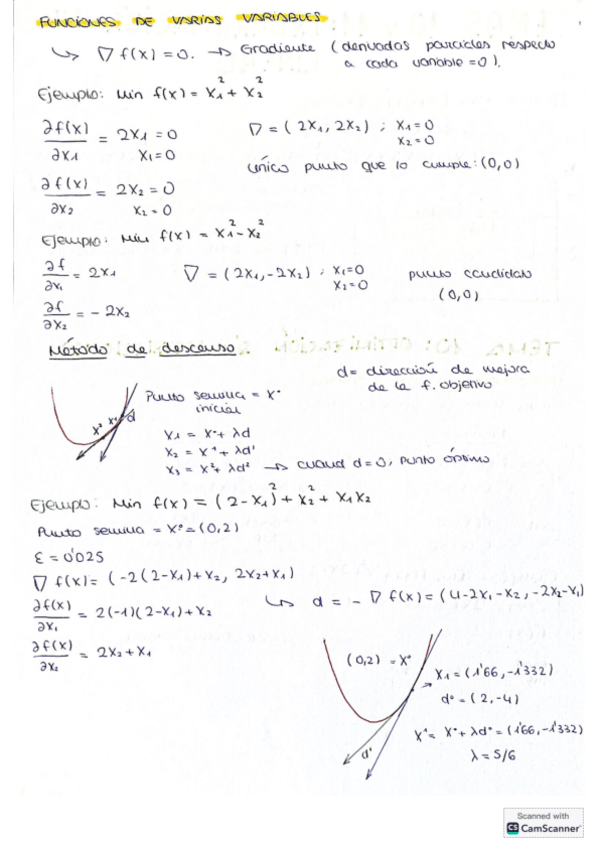 FUNCIONES DE VARIAS VARIABLES
↳ ∇ f(x) = 0. → Gradiente (derivadas parciales respecto
a cada variable = 0).
Ejemplo: Min f(x) = x₁² + x₂²
∂f(x)/∂x₁ = 2x₁ = 0
x₁ = 0
∇ = (2x₁, 2x₂) ; x₁ = 0
x₂ = 0
único punto que lo cumple: (0,0)
∂f(x)/∂x₂ = 2x₂ = 0
x₂ = 0
Ejemplo: Min f(x) = x₁² - x₂²
∂f/∂x₁ = 2x₁
∇ = (2x₁, -2x₂) ; x₁ = 0
x₂ = 0
punto candidato
(0,0)
∂f/∂x₂ = - 2x₂
Método de descenso.
d = dirección de mejora
de la f. objetivo
x² x¹ d
Punto semilla = x°
inicial
x₁ = x° + λd
x₂ = x¹ + λd¹
x₃ = x² + λd² → cuand d = 0, punto óptimo
Ejemplo: Min f(x) = (2 - x₁)² + x₂² + x₁x₂
Punto semilla = x° = (0,2)
ε = 0'025
∇ f(x) = (-2(2-x₁) + x₂, 2x₂ + x₁)
↳ d = - ∇ f(x) = (4 - 2x₁ - x₂, -2x₂ - x₁)
∂f(x)/∂x₁ = 2(-1)(2-x₁) + x₂
∂f(x)/∂x₂ = 2x₂ + x₁
(0,2) = x°
x₁ = (1'66, -1'332)
d° = (2, -4)
x¹ = x° + λd° = (1'66, -1'332)
λ = 5/6
d¹
Scanned with
CS CamScanner